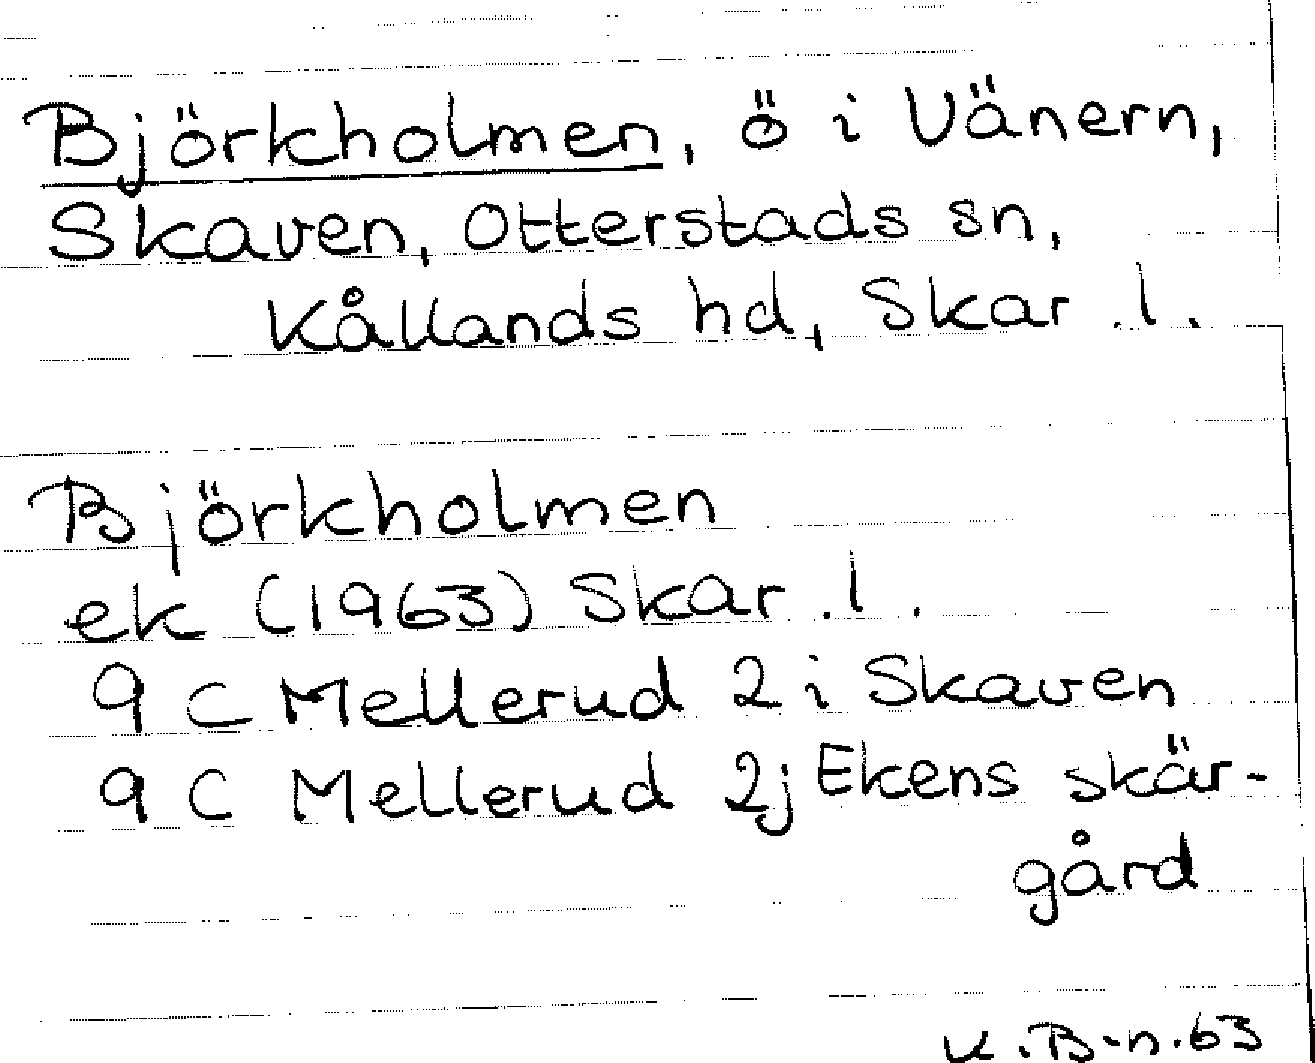 Björkholmen, ö i Vänern,
Skaven, Otterstads sn,
Kållands hd, Skar.l.
Björkholmen
ek (1963) Skar.l.
9 C Mellerud 2 i Skaven
9 C Mellerud 2j Ekens skär-
gård
K.B-n.63